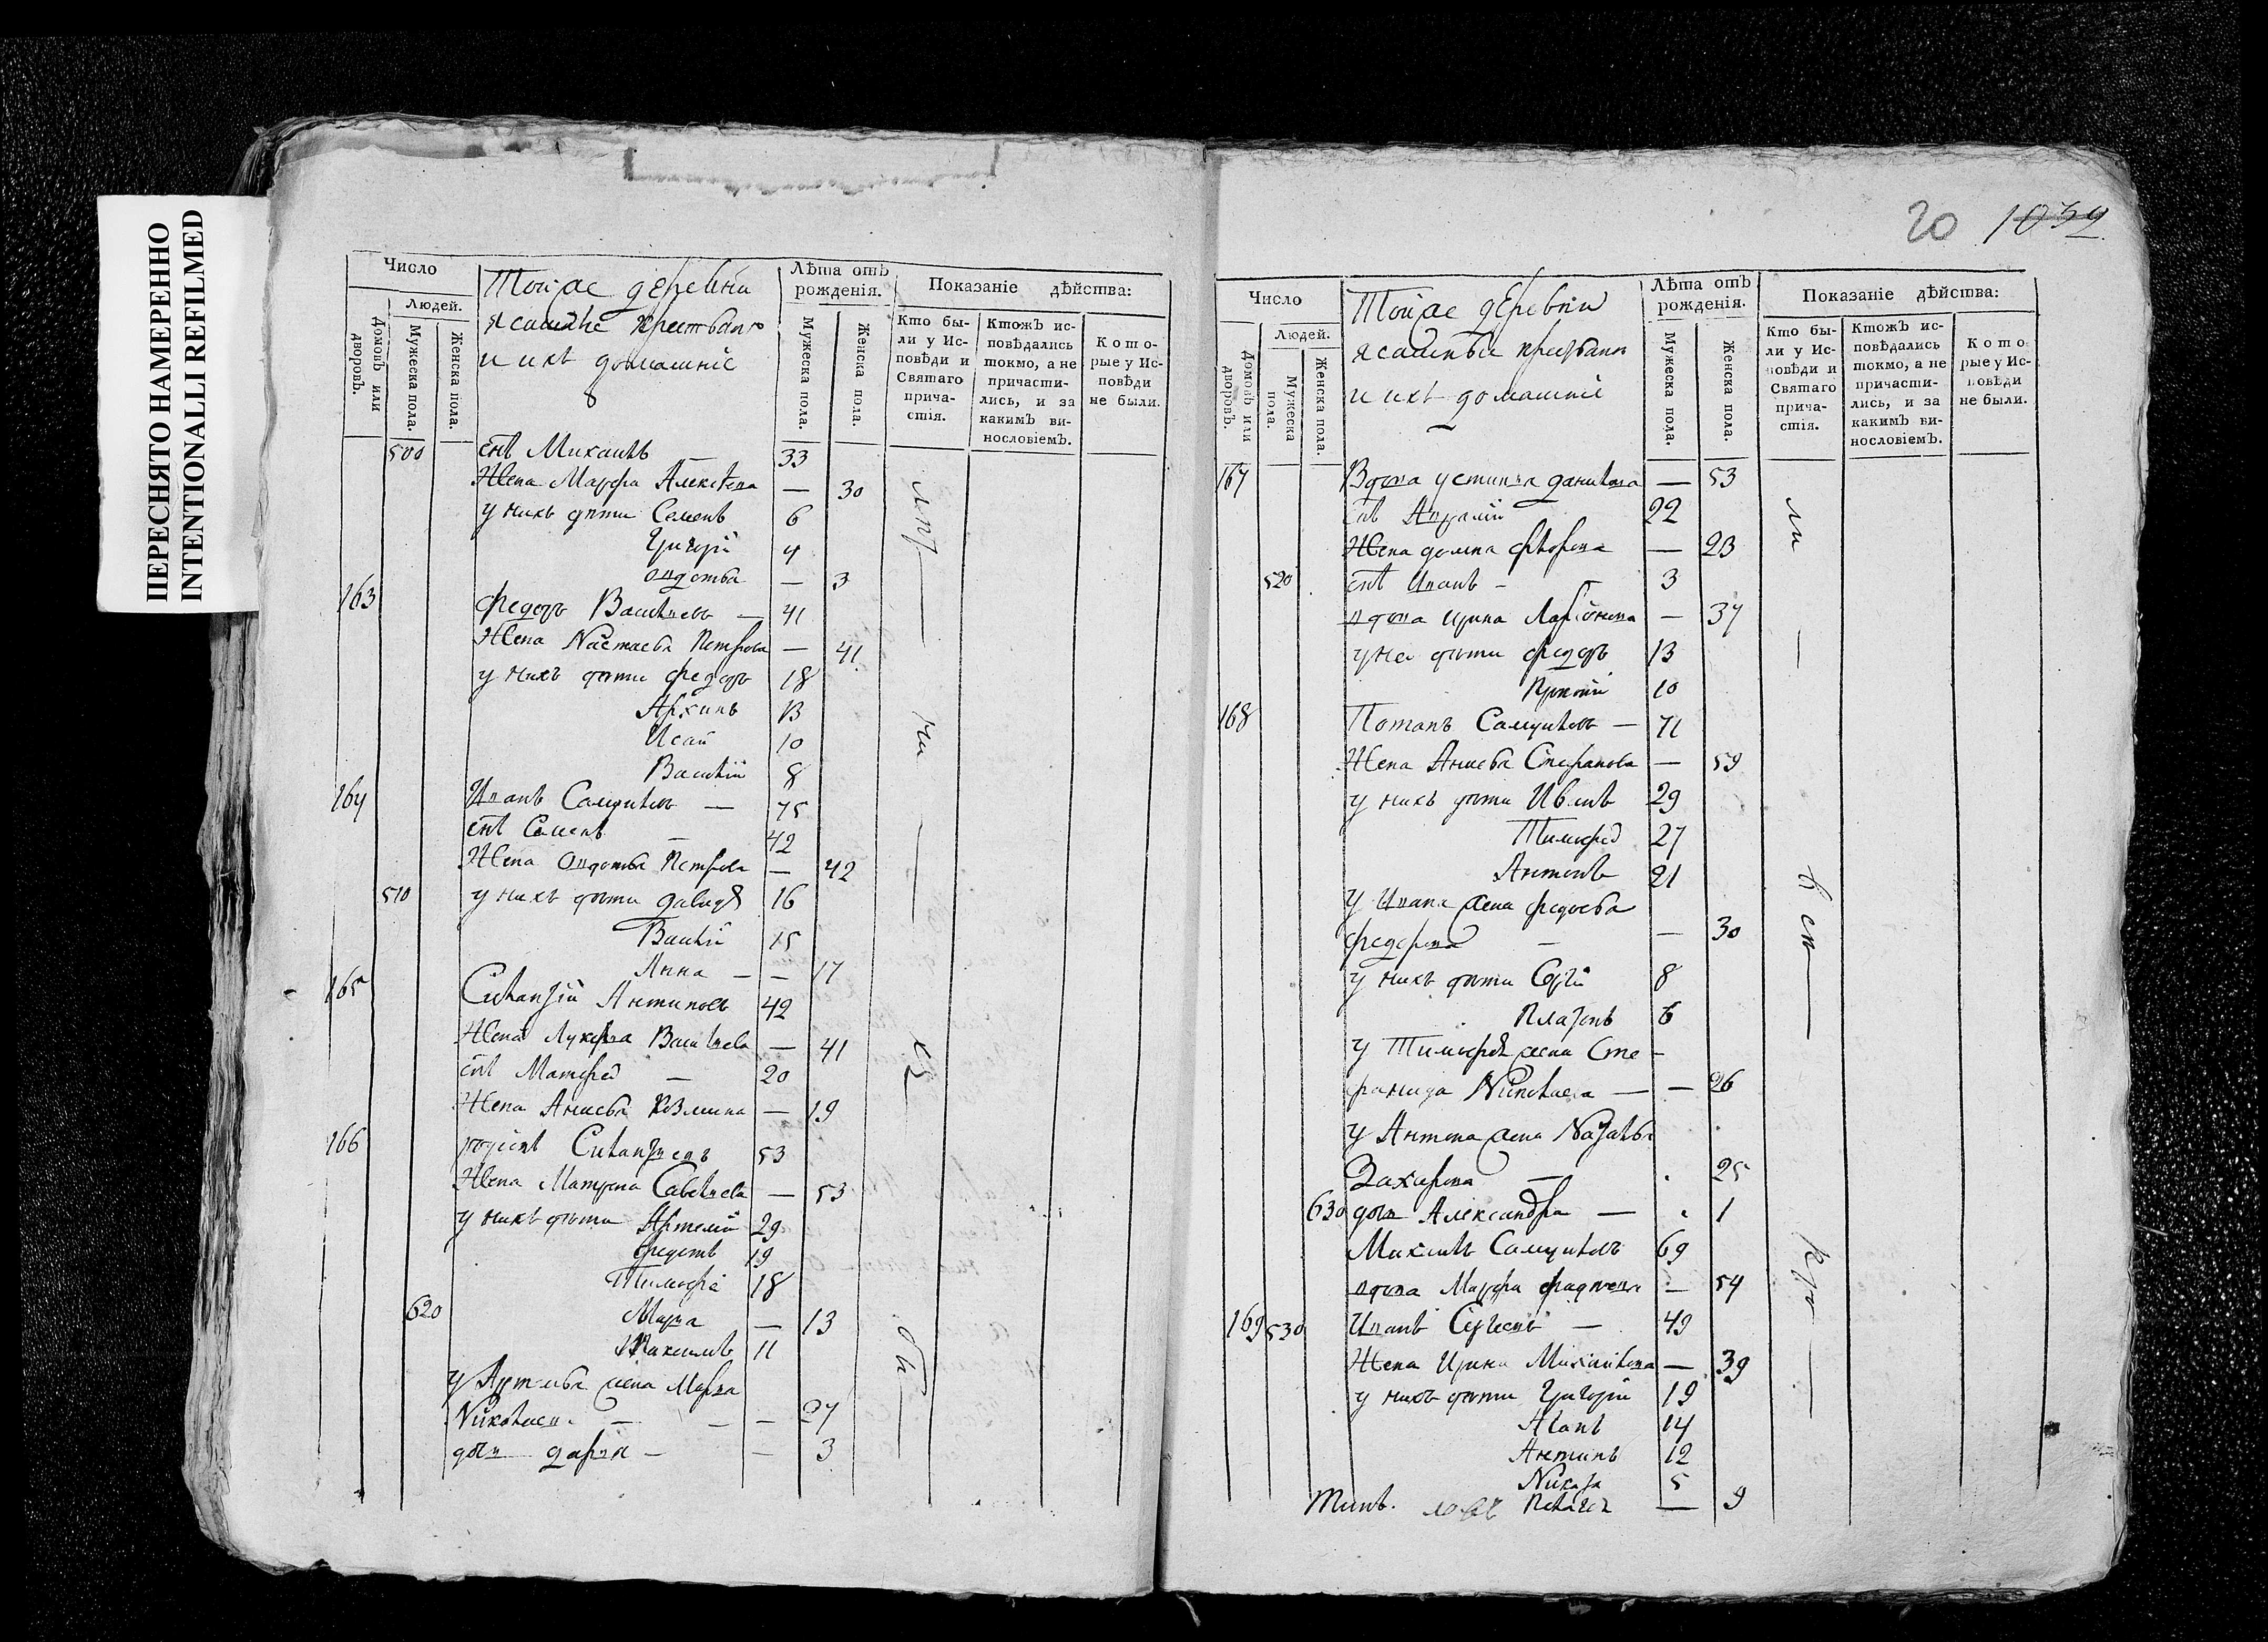 ПЕРЕСНЯТО НАМЕРЕННО
INTENTIONALLI REFILMED
Число
Людей.
Домовъ или дворовъ.
Мужеска пола.
Женска пола.
Тойже деревни
ясашные крестьяне
и ихъ домашнiе
Лѣта отъ рожденiя.
Мужеска пола.
Женска пола.
Показанiе дѣйства:
Кто бы-
ли у Ис-
повѣди и
Святаго
прича-
стiя.
Ктожъ ис-
повѣдались
токмо, а не
причасти-
лись, и за
какимъ ви-
нословiемъ.
К о т о-
рые у Ис-
повѣди
не были.
500 снъ Михаилъ — 33
Жена Марфа Алексѣева — 30
у нихъ дѣти Семенъ 6
Григорiй 4
Овдотья — 3
163 Федоръ Васильевъ — 41
Жена Настасья Петрова — 41
у нихъ дѣти Федоръ 18
Архипъ 13
Исай 10
Василiй 8
164 Иванъ Самуиловъ — 75
снъ Семенъ — 42
Жена Овдотья Петрова — 42
510 у нихъ дѣти Давидъ 16
Василiй 15
Анна — — 17
165 Силантiй Антиповъ 42
Жена Лукерья Васильева — 41
снъ Матфей — 20
Жена Анисья Козмина — 19
166 Силантьевъ 53
Жена Матрена Савельева — 53
у нихъ дѣти Артемiй 29
Федотъ 19
Тимофей 18
620 Марья — 13
Максимъ 11
у Артемья жена Марья
Николаева — — — 27
дочь Дарья — — 3
20 1039
Число
Людей.
Домовъ или дворовъ.
Мужеска пола.
Женска пола.
Тойже деревни
ясашные крестьяне
и ихъ домашнiе
Лѣта отъ рожденiя.
Мужеска пола.
Женска пола.
Показанiе дѣйства:
Кто бы-
ли у Ис-
повѣди и
Святаго
прича-
стiя.
Ктожъ ис-
повѣдались
токмо, а не
причасти-
лись, и за
какимъ ви-
нословiемъ.
К о т о-
рые у Ис-
повѣди
не были.
167 Вдова Устинья Данилова — 53
снъ 22
Жена Домна — 23
520 снъ Иванъ — 3
вдова Ирина Ларiонова — 37
у неи дѣти Федоръ 13
10
168 Потапъ Самуиловъ — 71
Жена Анисья Стефанова — 59
у нихъ дѣти Иванъ 29
Тимофей 27
Антонъ 21
у Ивана жена Федосья
Федорова — — 30
у нихъ дѣти Сергiй 8
Платонъ 6
у Тимофея жена Сте-
фанида Николаева — — 26
у Антона жена Наталья
Захарова — 25
630 дочь Александра — 1
Михаилъ Самуиловъ 69
вдова Марфа — 54
169 530 Иванъ Сергеевъ — 49
Жена Ирина Михаилова — 39
у нихъ дѣти Григорiй 19
14
Антипъ 12
Никита 5
Пелагея — 9